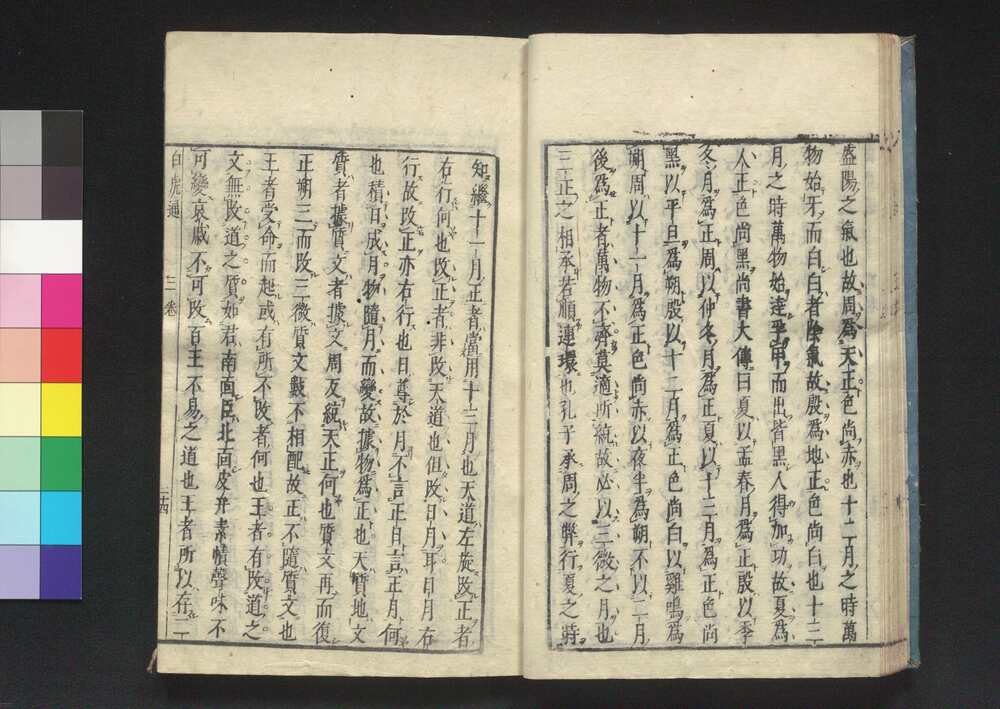 盛陽之氣也故周爲天正色尚赤也十二月之時萬
物始牙而白白者陰氣故殷爲地正色尚白也十三
月之時萬物始達孚甲而出皆黑人得加功故夏爲
人正色尚黑尚書大傳曰夏以孟春月爲正殷以季
冬月爲正周以仲冬月爲正夏以十三月爲正色尚
黑以平旦爲朔殷以十二月爲正色尚白以雞鳴爲
朔周以十一月爲正色尚赤以夜半爲朔不以二月
後爲正者萬物不齊莫適所統故必以三微之月也
三正之相承若順連環也孔子承周之弊行夏之時
知繼十一月正者當用十三月也天道左旋攺正者
右行何也攺正者非攺天道也但攺日月耳日月右
行故攺正亦右行也日尊於月不言正日言正月何
也積日成月物隨月而變故據物爲正也天質地文
質者據質文者據文周反統天正何也質文再而復
正朔三而攺三微質文數不相配故正不隨質文也
王者受命而起或有所不攺者何也王者有攺道之
文無攺道之質如君南面臣北面皮弁素幘聲味不
可變哀戚不可攺百王不易之道也王者所以存二
白虎通 三卷 二十四